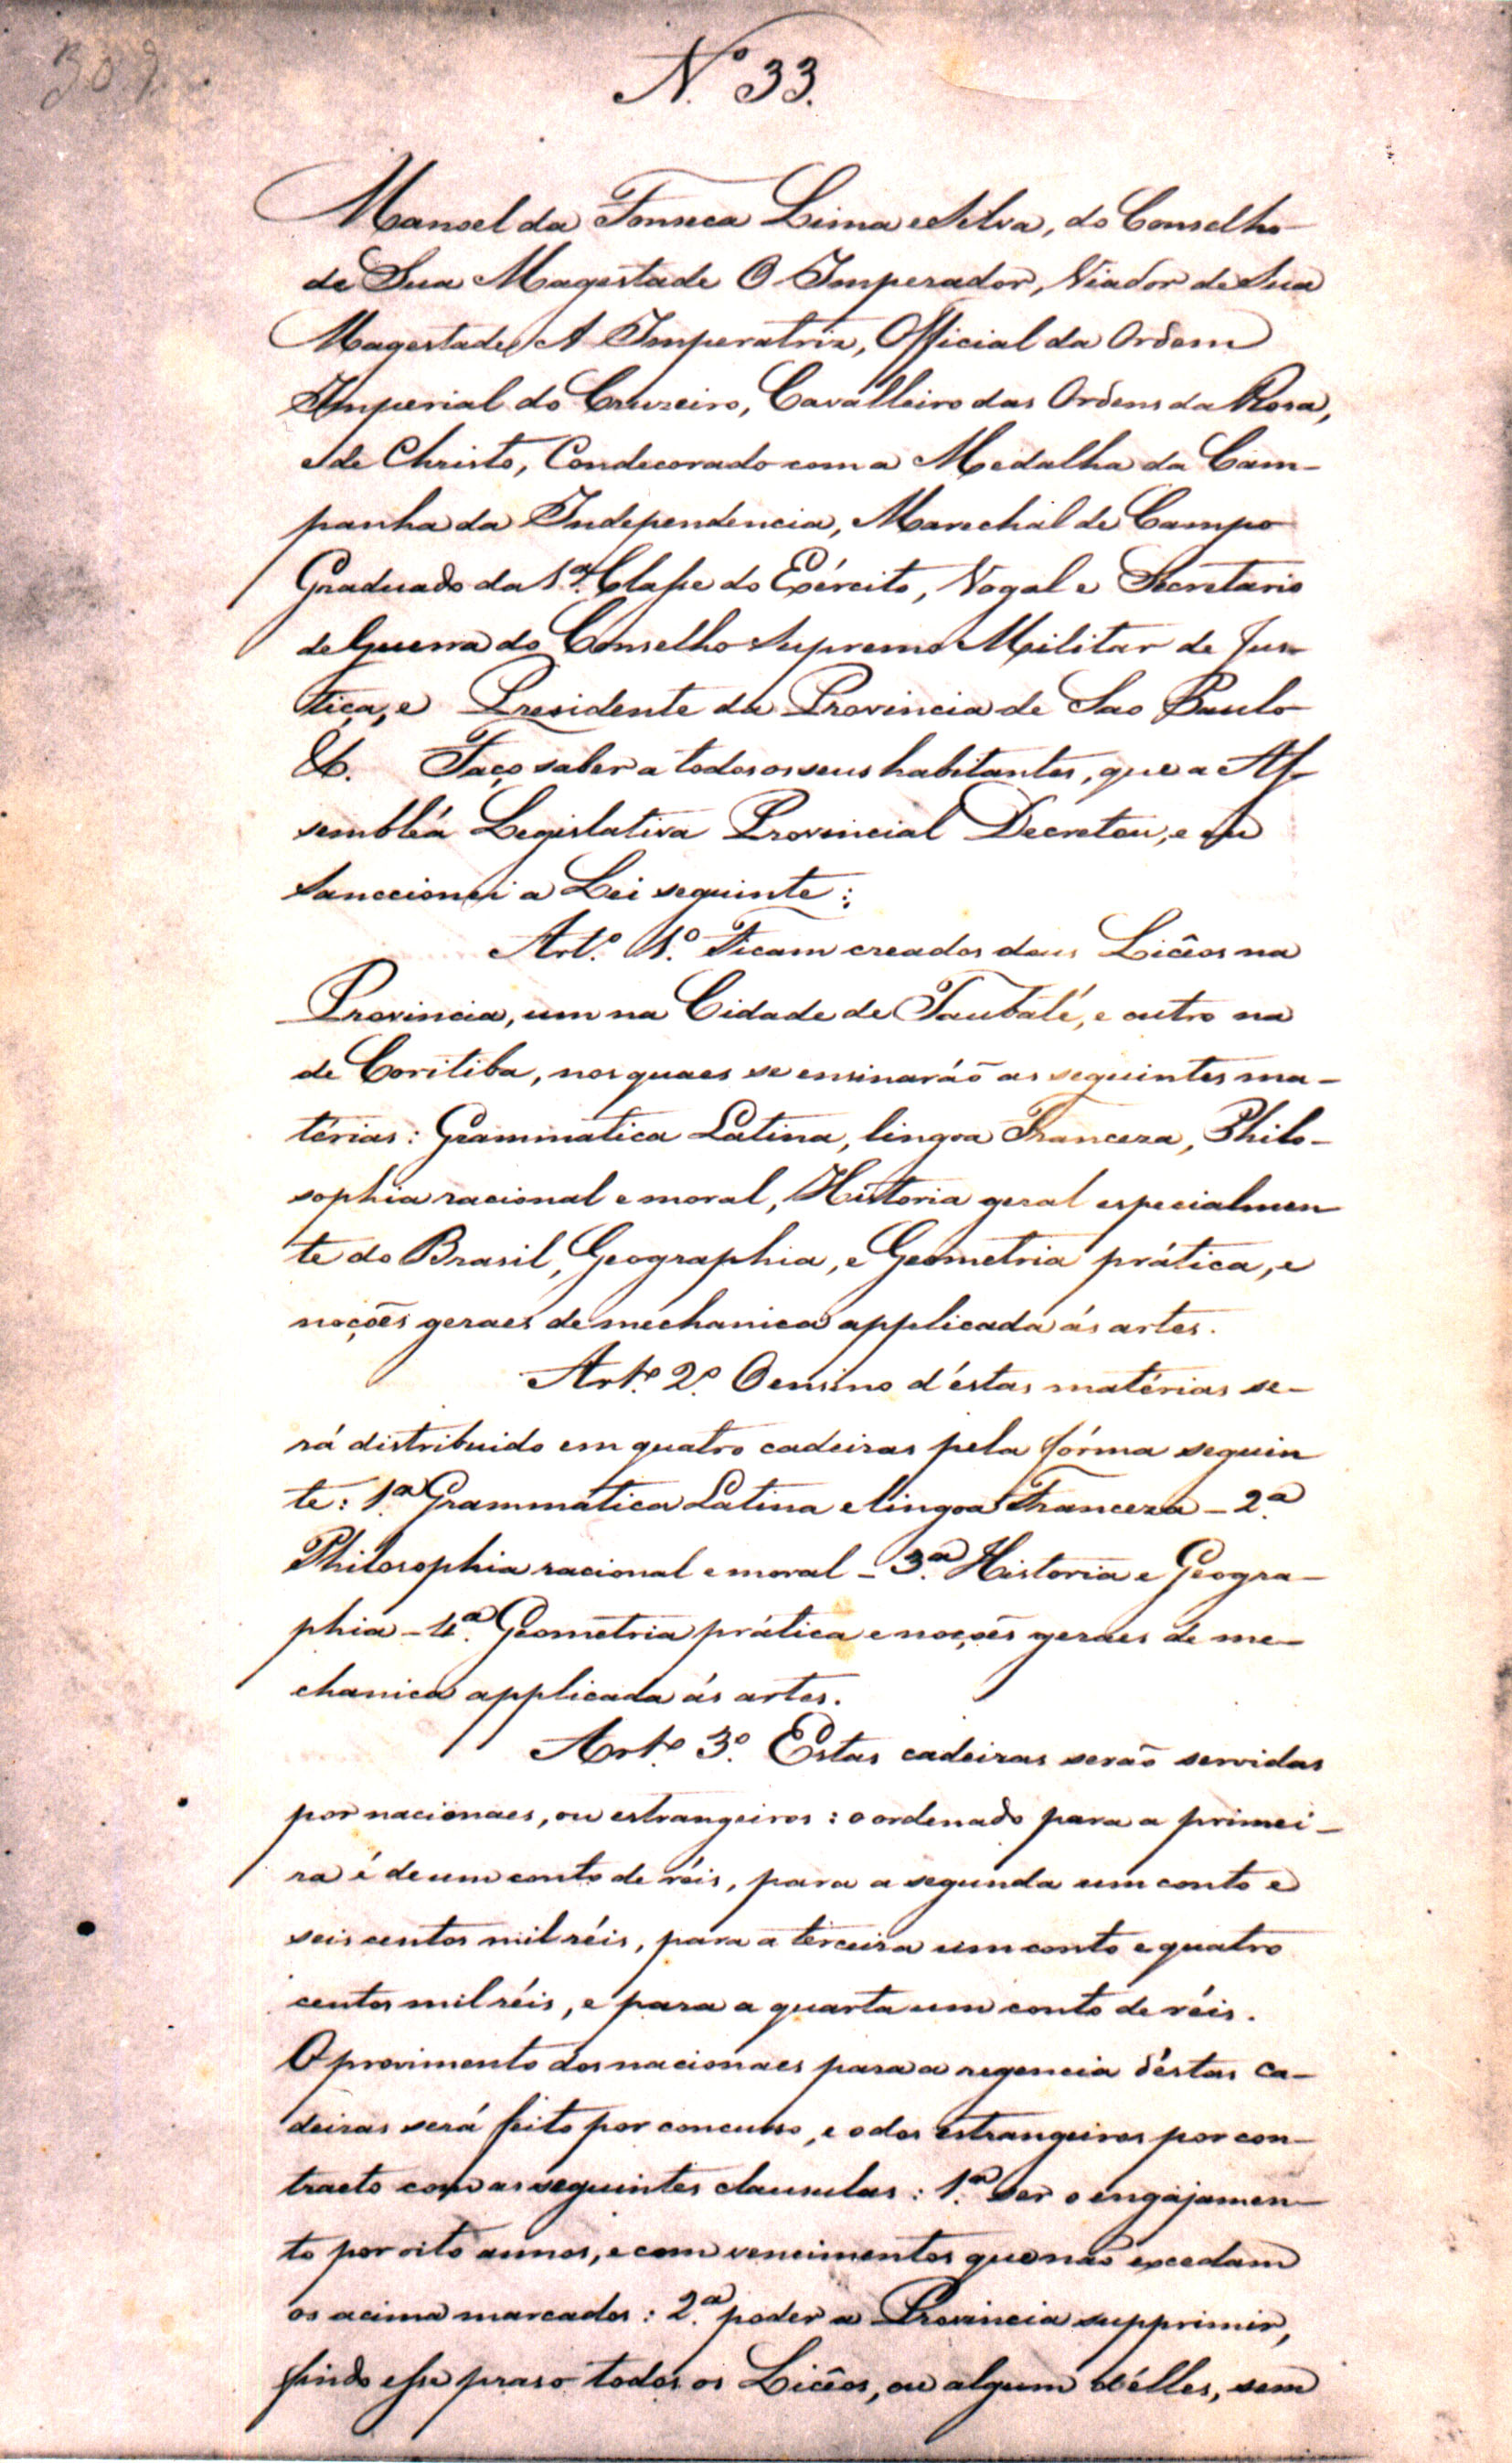 309.
Nº 33.
Manoel da Fonseca Lima e Silva, do Conselho
de Sua Magestade O Imperador, Viador de Sua
Magestade A Imperatriz, Official da Ordem
Imperial do Cruzeiro, Cavalleiro das Ordens da Rosa,
e de Christo, Condecorado com a Medalha da Cam-
panha da Independencia, Marechal de Campo
Graduado da 1ª Classe do Exército, Vogal e Secretario
de Guerra do Conselho Supremo Militar de Jus-
tiça, e Presidente da Provincia de Sao Paulo
&. Faço saber a todos os seus habitantes, que a As-
sembléa Legislativa Provincial Decretou, e eu
Sanccionei a Lei seguinte:
Artº. 1º. Ficam creados dous Licêos na
Provincia, um na Cidade de Taubaté, e outro na
de Coritiba, nos quaes se ensinaráõ as seguintes ma-
térias: Grammatica Latina, lingoa Franceza, Philo-
sophia racional e moral, Historia geral especialmen
te do Brasil, Geographia, e Geometria prática, e
noções geraes de mechanica applicada ás artes.
Artº. 2º. O ensino d'éstas matérias se-
rá distribuido em quatro cadeiras pela fórma seguin
te: 1ª Grammática Latina e lingoa Franceza - 2ª
Philosophia racional e moral - 3ª Historia e Geogra-
phia - 4ª. Geometria prática e noções geraes de me-
chanica applicada ás artes.
Artº. 3º. Estas cadeiras serão servidas
por nacionaes, ou estrangeiros: o ordenado para a primei-
ra é de um conto de réis, para a segunda um conto e
seis centos mil réis, para a terceira um conto e quatro
centos mil réis, e para a quarta um conto de réis.
O provimento dos nacionaes para a regencia d'éstas ca-
deiras será feito por concurso, e o dos estrangeiros por con-
tracto com as seguintes clausulas: 1ª. ser o engajamen-
to por oito annos, e com vencimentos que não excedam
os acima marcados: 2ª. poder a Provincia supprimir,
findo esse praso todos os Licêos, ou algum d'élles, sem